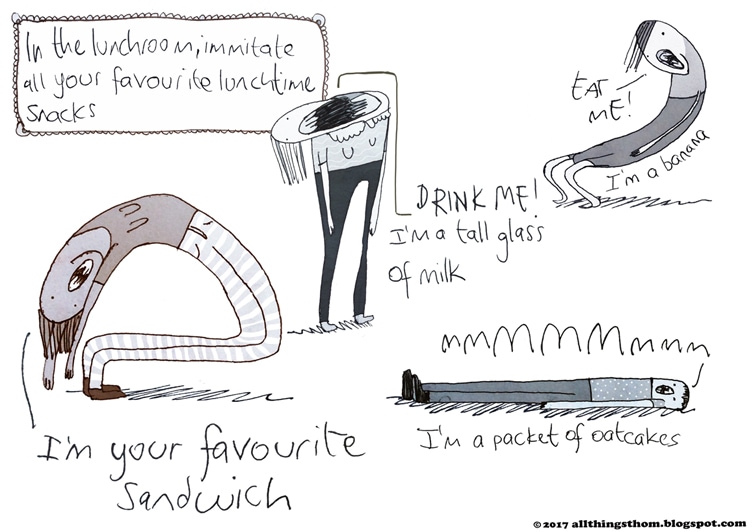 In the lunchroom, immitate
all your favourite lunchtime
snacks
EAT
ME!
I'm a banana
DRINK ME!
I'm a tall glass
of milk
mmMMMMmmmm
I'm a packet of oatcakes
I'm your favourite
sandwich
©2017 allthingsthom.blogspot.com